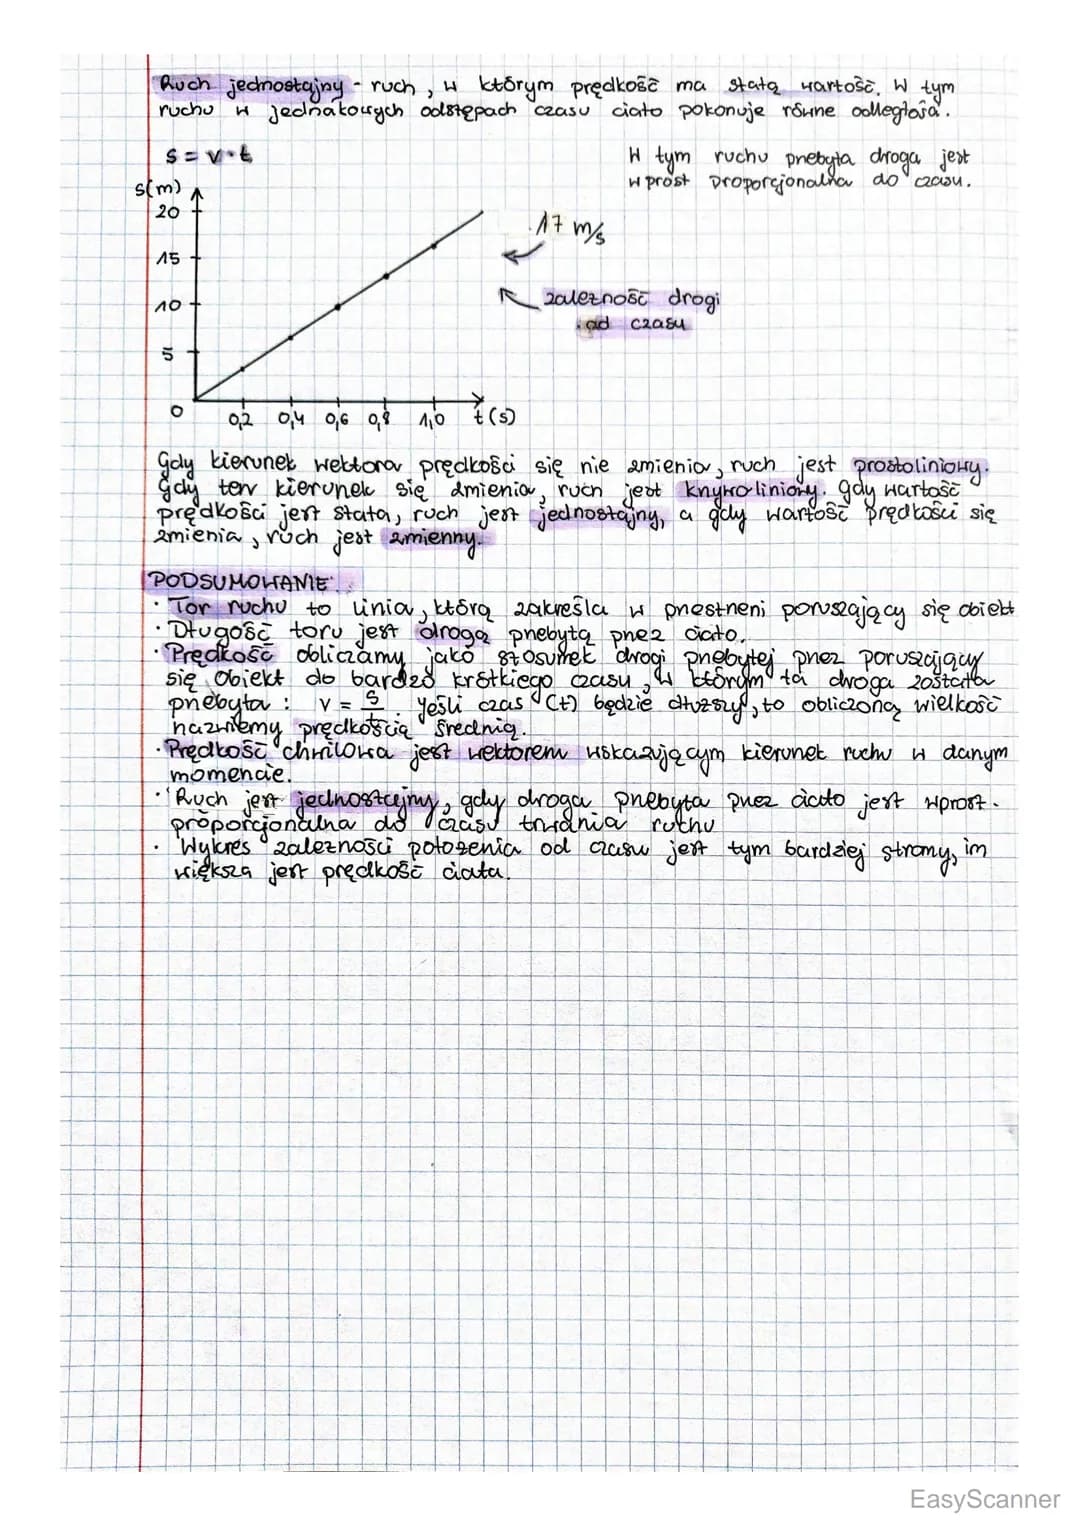 Ruch jednostajny - ruch, w którym prędkość ma stałą wartość. W tym
ruchu w jednakowych odstępach czasu ciało pokonuje równe odległości.
s = v · t
W tym ruchu przebyta droga jest
wprost proporcjonalna do czasu.
s(m)
20
15
10
5
0
17 m/s
zależność drogi
od czasu
0,2 0,4 0,6 0,8 1,0 t(s)
Gdy kierunek wektora prędkości się nie zmienia, ruch jest prostoliniowy.
Gdy ten kierunek się zmienia, ruch jest krzywoliniowy. Gdy wartość
prędkości jest stała, ruch jest jednostajny, a gdy wartość prędkości się
zmienia, ruch jest zmienny.
PODSUMOWANIE:
· Tor ruchu to linia, którą zakreśla w przestrzeni poruszający się obiekt
· Długość toru jest drogą przebytą przez ciało.
· Prędkość obliczamy jako stosunek drogi przebytej przez poruszający
się obiekt do bardzo krótkiego czasu, w którym ta droga została
przebyta: v = s/t. Jeśli czas (t) będzie dłuższy, to obliczoną wielkość
nazwiemy prędkością średnią.
· Prędkość chwilowa jest wektorem wskazującym kierunek ruchu w danym
momencie.
· Ruch jest jednostajny, gdy droga przebyta przez ciało jest wprost-
proporcjonalna do czasu trwania ruchu
· Wykres zależności położenia od czasu jest tym bardziej stromy, im
większa jest prędkość ciała.
EasyScanner